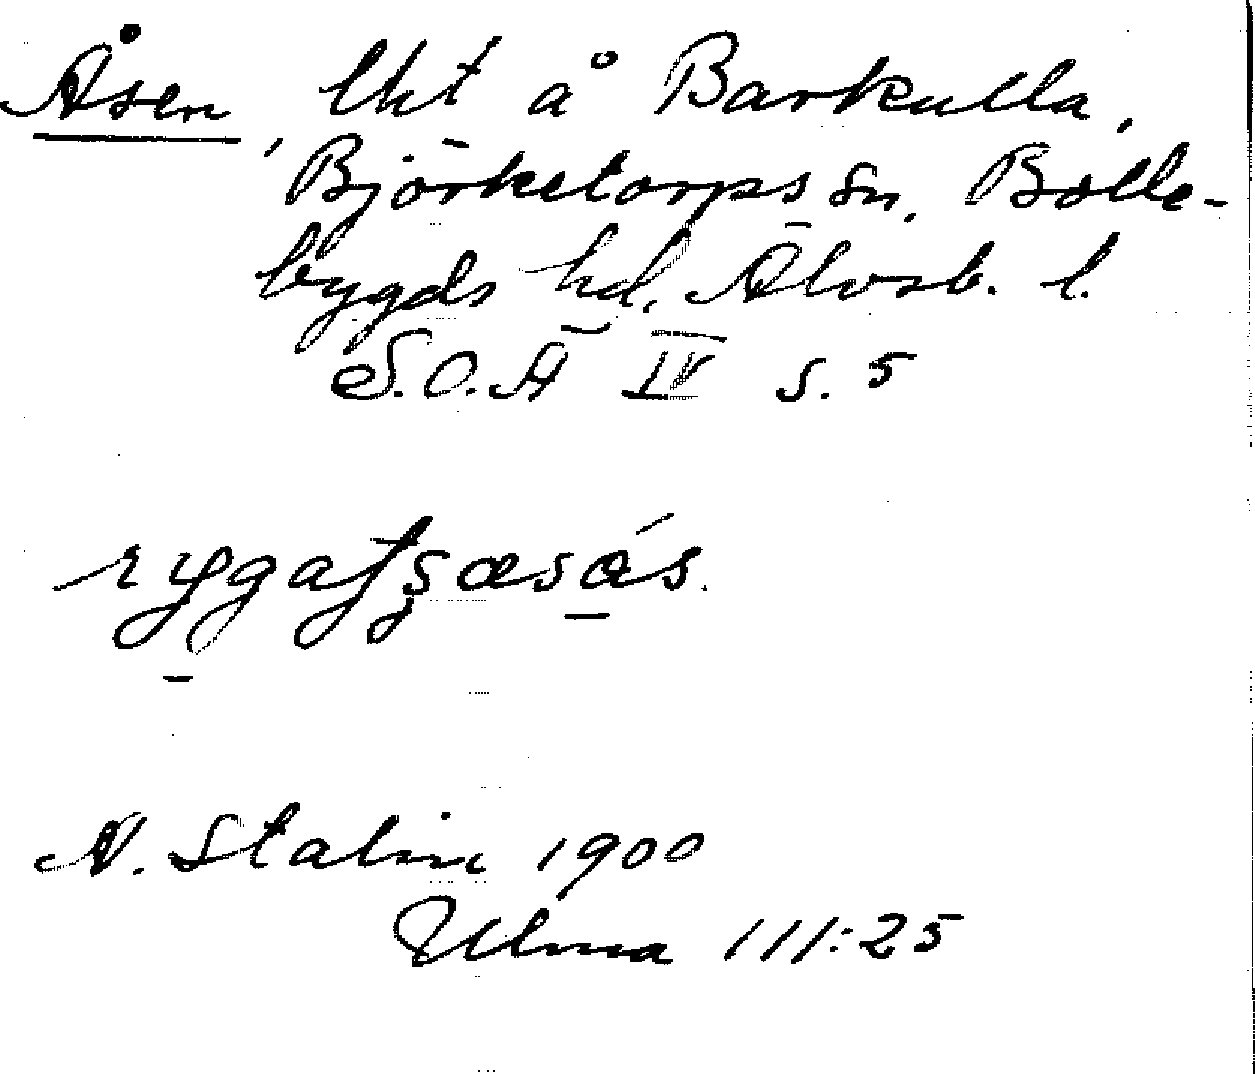 Åsen, lht å Barkulla,
Björketorps sn, Bolle-
bygds hd, Älvsb. l.
S.O.Ä IV s. 5
N. Stalin 1900
Ulma 111:25